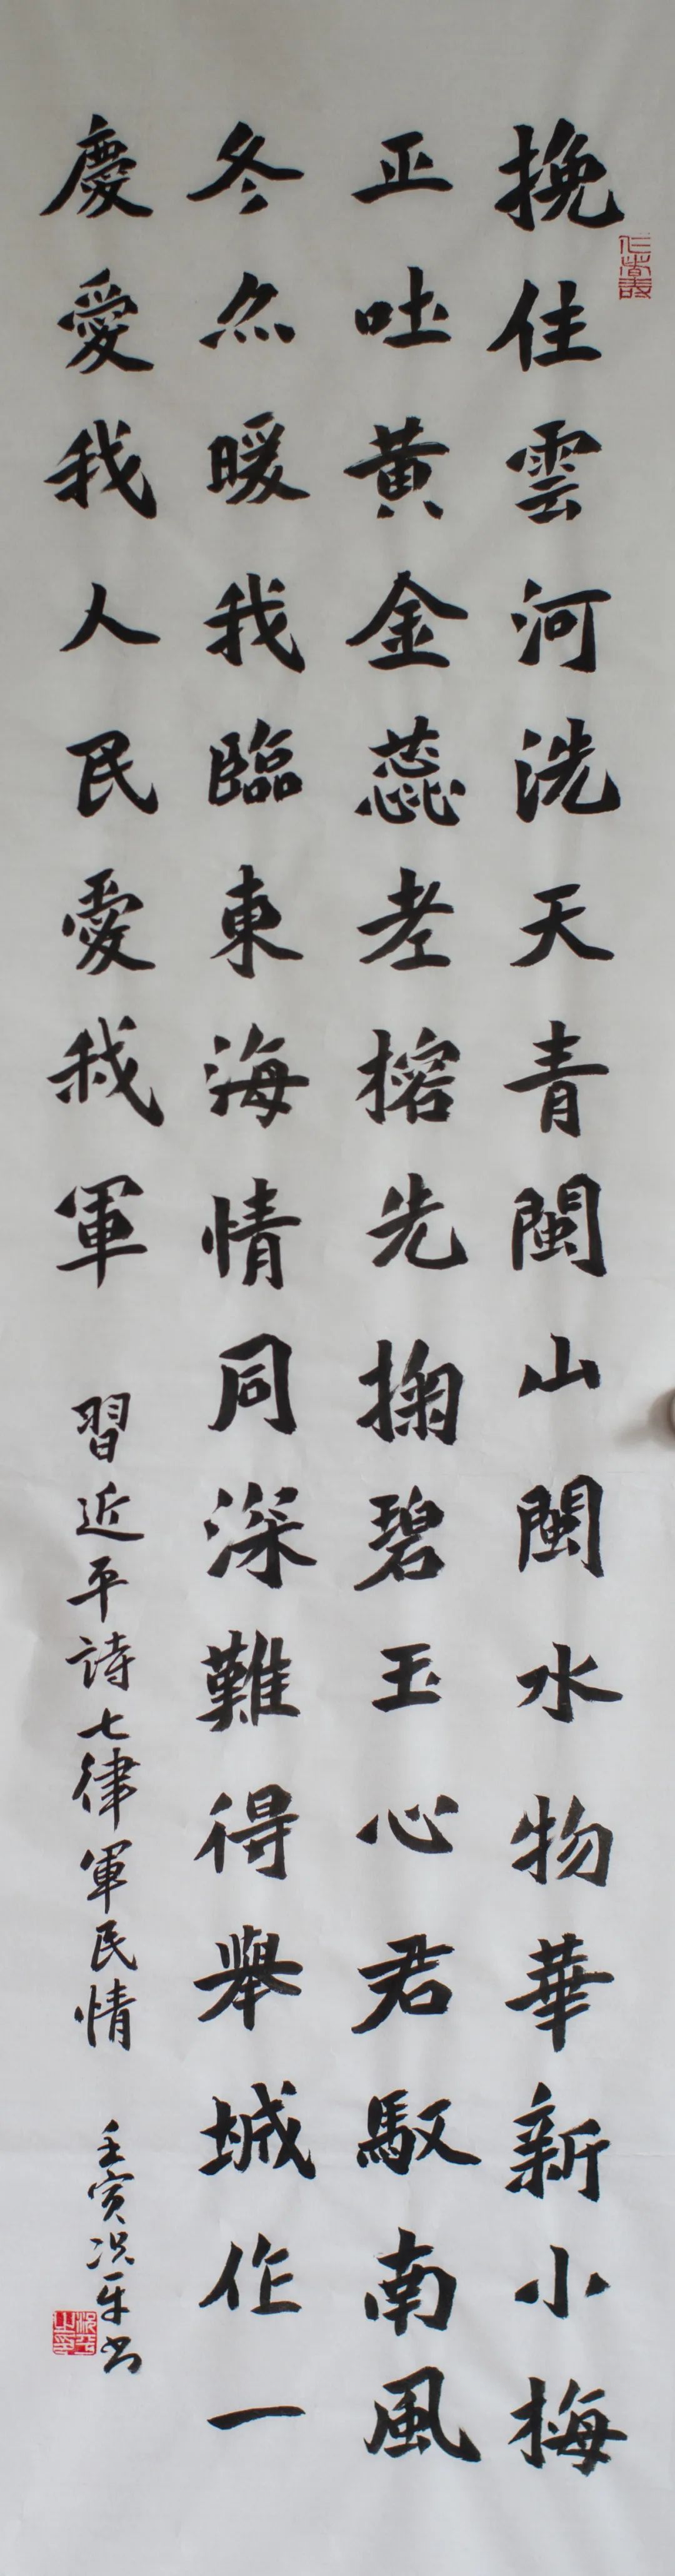 挽住雲河洗天青閩山閩水物華新小梅
正吐黄金蕊老榕先掬碧玉心君馭南風
冬亦暖我臨東海情同深難得舉城作一
慶愛我人民愛我軍 習近平詩七律軍民情 壬寅況平书